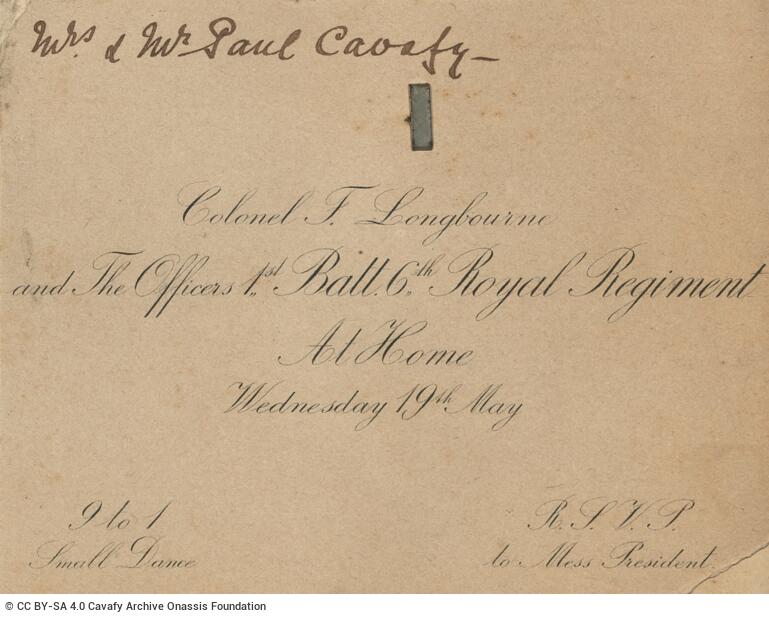 Mrs & Mr Paul Cavafy –
Colonel F. Longbourne
and The Officers 1st Batt. 6th Royal Regiment
At Home
Wednesday 19th May
9 to 1
Small Dance
R. S. V. P.
to Mess President.
© CC BY-SA 4.0 Cavafy Archive Onassis Foundation